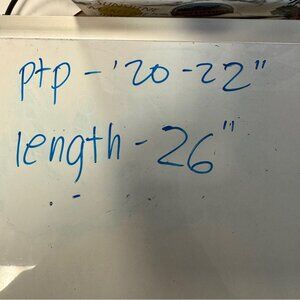 ptp - '20 - 22"
length - 26"